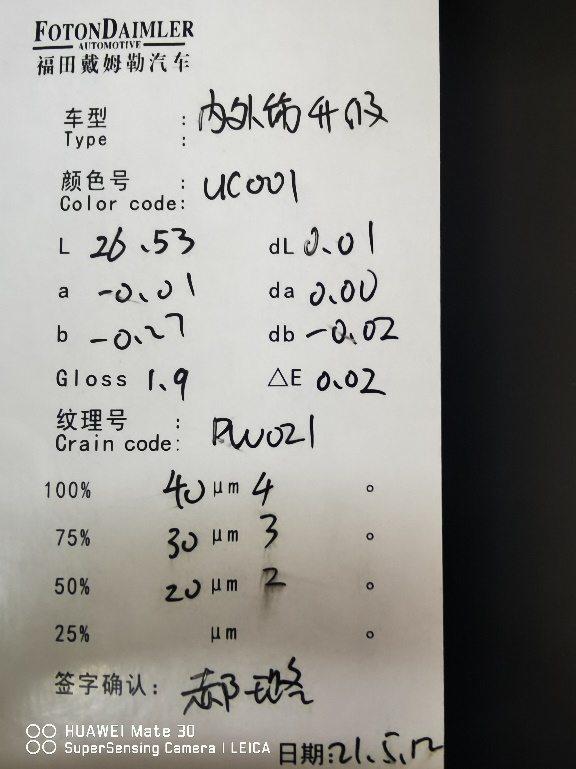 FOTONDAIMLER
AUTOMOTIVE
福田戴姆勒汽车
车型 : 内外饰升级
Type :
颜色号 : UC001
Color code:
L 26.53 dL 0.01
a -0.01 da 0.00
b -0.27 db -0.02
Gloss 1.9 △E 0.02
纹理号 : PW021
Crain code:
100% 40 μm 4 °
75% 30 μm 3 °
50% 20 μm 2 °
25% μm °
签字确认: 郝
HUAWEI Mate 30
SuperSensing Camera | LEICA
日期:21.5.12